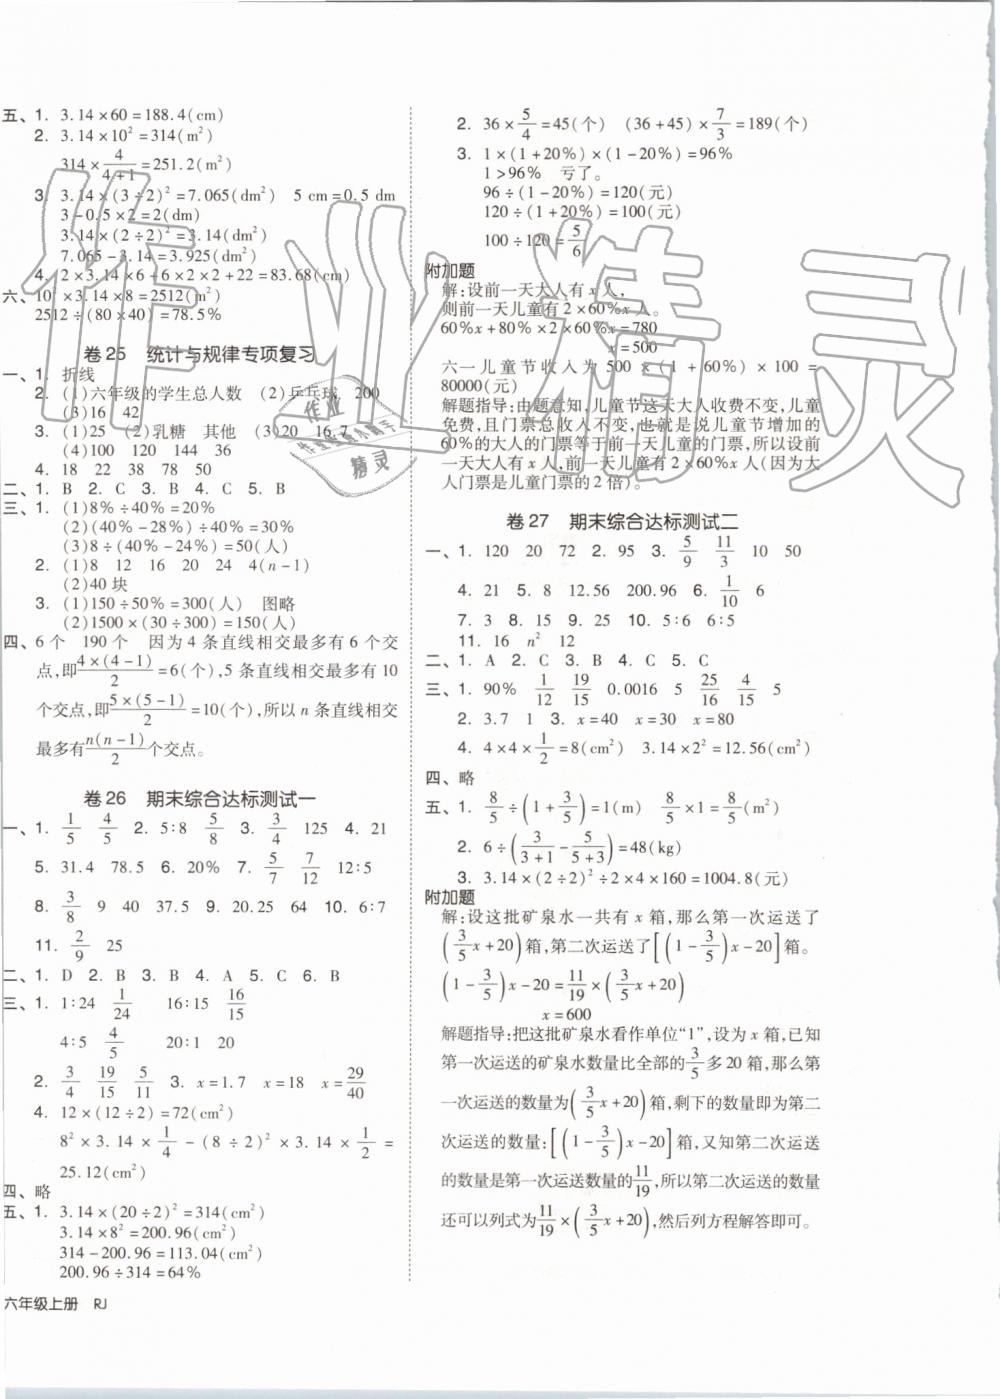 五、1. 3.14×60=188.4(cm)
2. 3.14×10²=314(m²)
314×4/(4+1)=251.2(m²)
3. 3.14×(3÷2)²=7.065(dm²) 5 cm=0.5 dm
3-0.5×2=2(dm)
3.14×(2÷2)²=3.14(dm²)
7.065-3.14=3.925(dm²)
4. 2×3.14×6÷6×2×2+22=83.68(cm)
六、10²×3.14×8=2512(m²)
2512÷(80×40)=78.5%
卷25 统计与规律专项复习
一、1. 折线
2. (1)六年级的学生总人数 (2)乒乓球 200
(3)16 42
3. (1)25 (2)乳糖 其他 (3)20 16.7
(4)100 120 144 36
4. 18 22 38 78 50
二、1. B 2. C 3. B 4. C 5. B
三、1. (1)8%÷40%=20%
(2)(40%-28%)÷40%=30%
(3)8÷(40%-24%)=50(人)
2. (1)8 12 16 20 24 4(n-1)
(2)40 块
3. (1)150÷50%=300(人) 图略
(2)1500×(30÷300)=150(人)
四、6 个 190 个 因为 4 条直线相交最多有 6 个交
点,即4×(4-1)/2=6(个),5 条直线相交最多有 10
个交点,即5×(5-1)/2=10(个),所以 n 条直线相交
最多有n(n-1)/2个交点。
卷26 期末综合达标测试一
一、1. 1/5 4/5 2. 5:8 5/8 3. 3/4 125 4. 21
5. 31.4 78.5 6. 20% 7. 5/7 7/12 12:5
8. 3/8 9 40 37.5 9. 20.25 64 10. 6:7
11. 2/9 25
二、1. D 2. B 3. B 4. A 5. C 6. B
三、1. 1:24 1/24 16:15 16/15
4:5 4/5 20:1 20
2. 3/4 19/15 5/11 3. x=1.7 x=18 x=29/40
4. 12×(12÷2)=72(cm²)
8²×3.14×1/4-(8÷2)²×3.14×1/2=
25.12(cm²)
四、略
五、1. 3.14×(20÷2)²=314(cm²)
3.14×8²=200.96(cm²)
314-200.96=113.04(cm²)
200.96÷314=64%
六年级上册 RJ
2. 36×5/4=45(个) (36+45)×7/3=189(个)
3. 1×(1+20%)×(1-20%)=96%
1>96% 亏了。
96÷(1-20%)=120(元)
120÷(1+20%)=100(元)
100÷120=5/6
附加题
解:设前一天大人有 x 人,
则前一天儿童有 2×60%x 人。
60%x+80%×2×60%x=780
x=500
六一儿童节收入为 500×(1+60%)×100=
80000(元)
解题指导:由题意知,儿童节这天大人收费不变,儿童
免费,且门票总收入不变,也就是说儿童节增加的
60%的大人的门票等于前一天儿童的门票,所以设前
一天大人有 x 人,前一天儿童有 2×60%x 人(因为大
人门票是儿童门票的 2 倍)。
卷27 期末综合达标测试二
一、1. 120 20 72 2. 95 3. 5/9 11/3 10 50
4. 21 5. 8 12.56 200.96 6. 1/10 6
7. 3 8. 15 9. 25 10. 5:6 6:5
11. 16 n² 12
二、1. A 2. C 3. B 4. C 5. C
三、1. 90% 1/12 19/15 0.0016 5 25/16 4/15 5
2. 3.7 1 3. x=40 x=30 x=80
4. 4×4×1/2=8(cm²) 3.14×2²=12.56(cm²)
四、略
五、1. 8/5÷(1+3/5)=1(m) 8/5×1=8/5(m²)
2. 6÷(3/(3+1)-5/(5+3))=48(kg)
3. 3.14×(2÷2)²÷2×4×160=1004.8(元)
附加题
解:设这批矿泉水一共有 x 箱,那么第一次运送了
(3/5x+20)箱,第二次运送了[(1-3/5)x-20]箱。
(1-3/5)x-20=11/19×(3/5x+20)
x=600
解题指导:把这批矿泉水看作单位“1”,设为 x 箱,已知
第一次运送的矿泉水数量比全部的3/5多20箱,那么第
一次运送的数量为(3/5x+20)箱,剩下的数量即为第二
次运送的数量:[(1-3/5)x-20]箱,又知第二次运送
的数量是第一次运送数量的11/19,所以第二次运送的数量
还可以列式为11/19×(3/5x+20),然后列方程解答即可。
作业精灵
作业
精灵